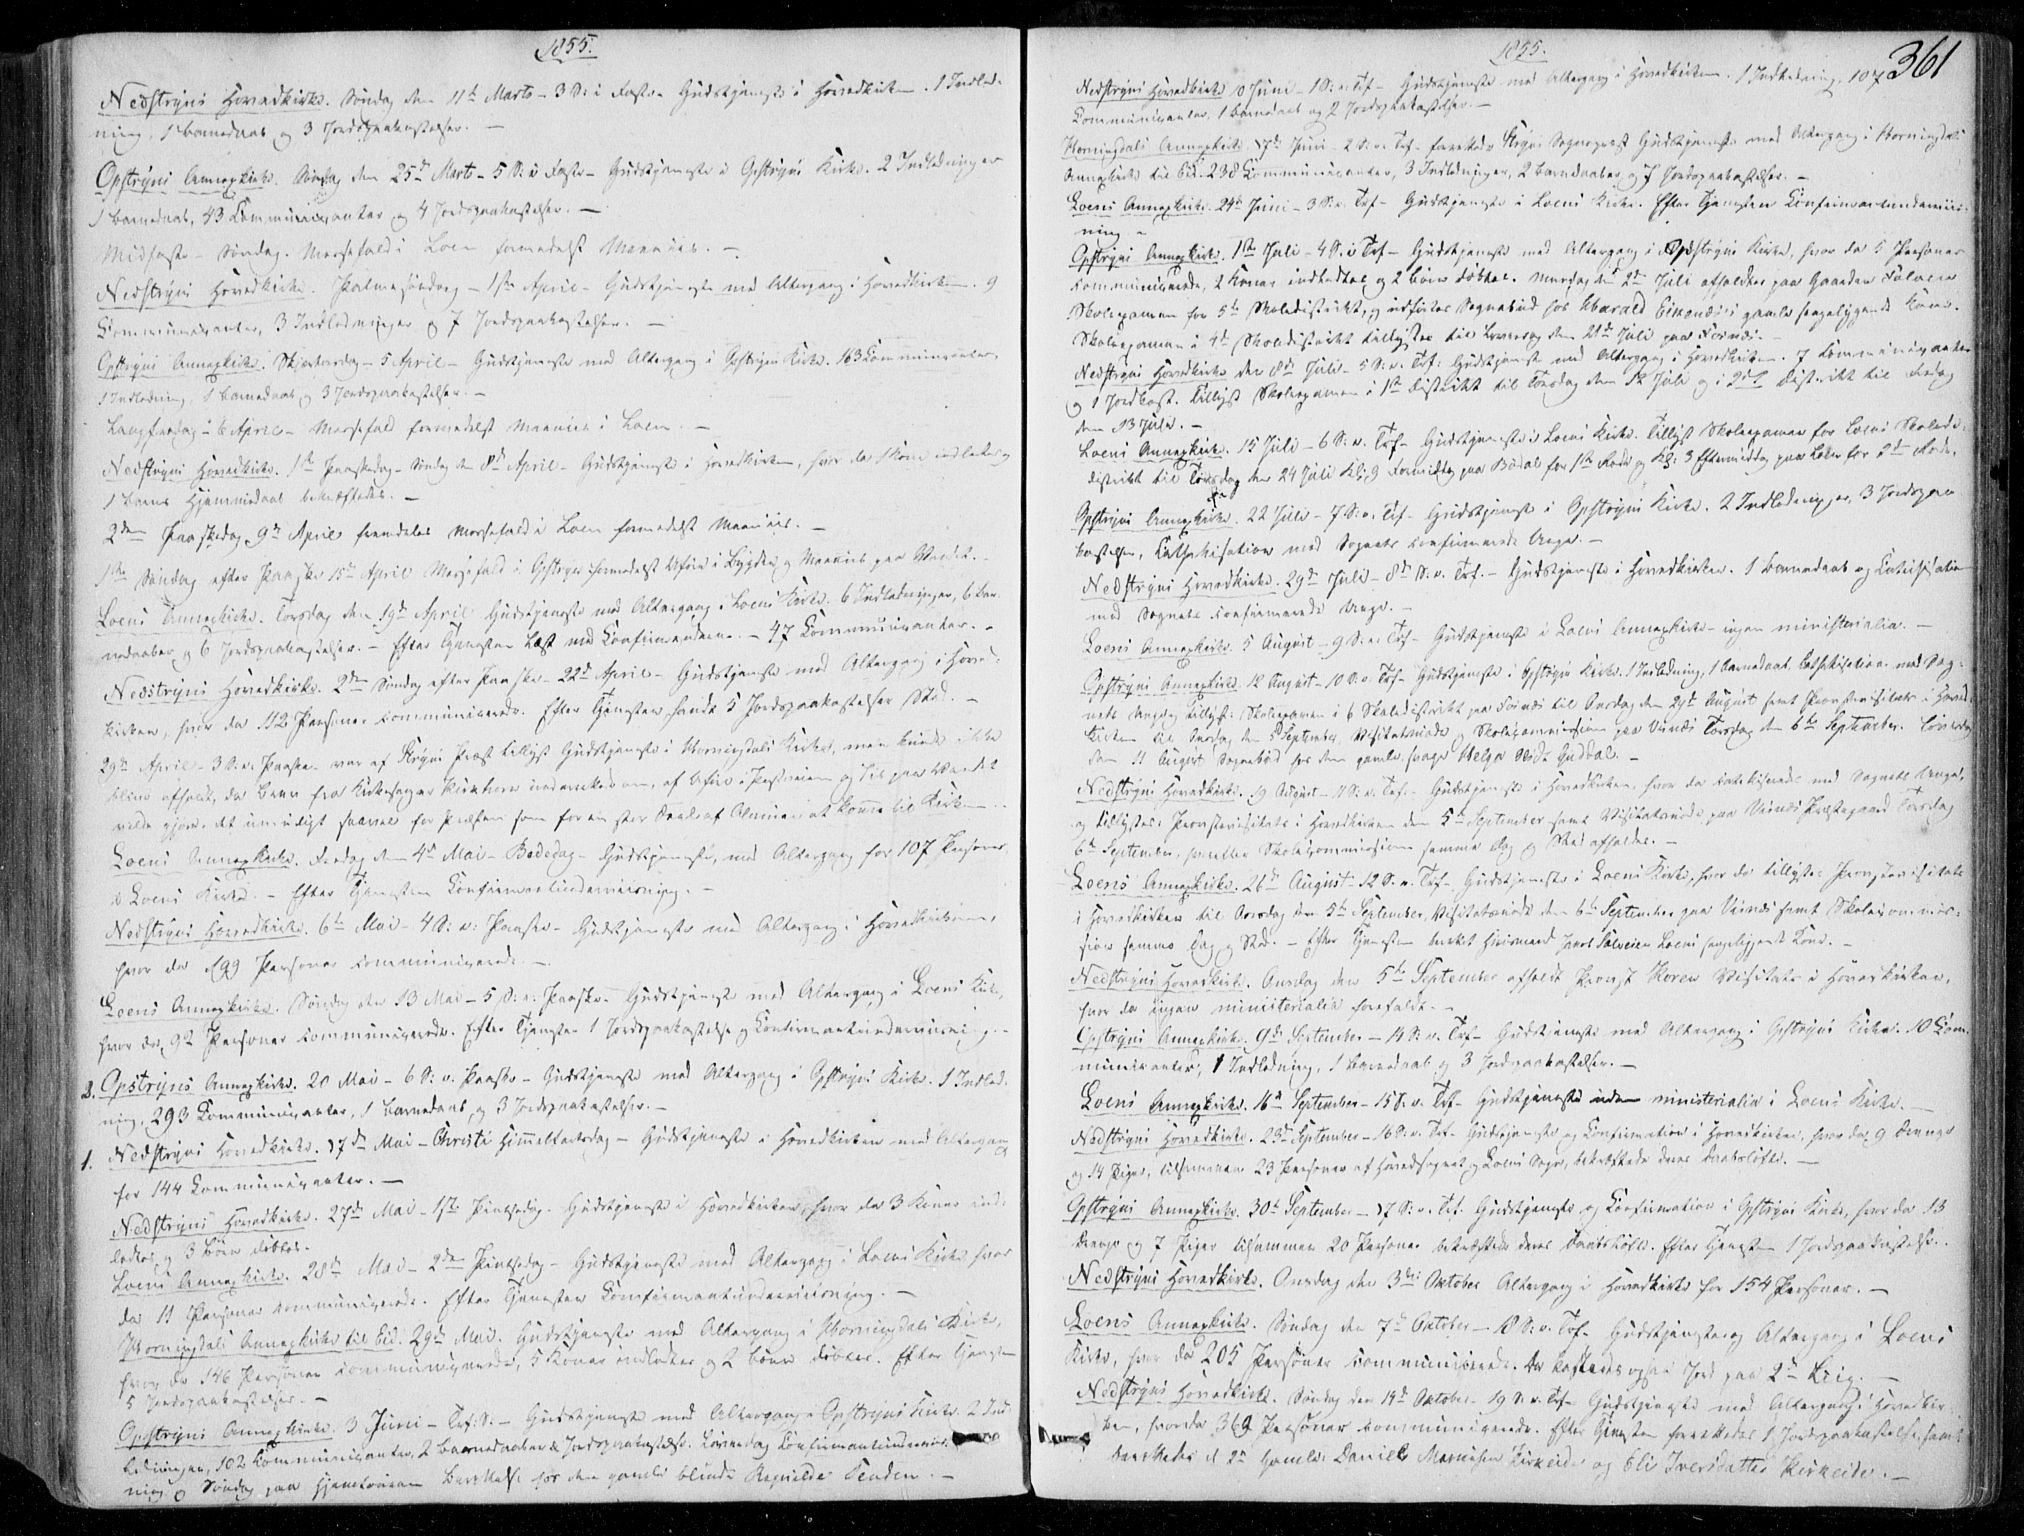 1855.
Nedstryns Hovedkirke. Søndag den 11te Marts - 3 S: i Faste - Gudstjeneste i Hovedkirken. 1 Indled-
ning, 1 Barnedaab og 3 Jordspaakastelser. —
Opstryns Annexkirke. Søndag den 25de Marts - 5 S: i Faste - Gudstjeneste i Opstryns Kirke. 2 Indledninger
1 Barnedaab, 43 Communicanter og 4 Jordspaakastelser. —
Midfaste - Søndag. Messefald i Loen formedelst Menniis. —
Nedstryns Hovedkirke. Palmesøndag - 1ste April - Gudstjeneste med Altergang i Hovedkirken. 9
Communicanter, 3 Indledninger og 7 Jordspaakastelser. —
Opstryns Annexkirke. Skjærtorsdag - 5 April - Gudstjeneste med Altergang i Opstryns Kirke. 163 Communicanter,
1 Indledning, 1 Barnedaab og 3 Jordspaakastelser. —
Langfredag - 6 April - Messefald formedelst Menniis i Loen. —
Nedstryns Hovedkirke. 1ste Paaskedag - Søndag den 8de April - Gudstjeneste i Hovedkirken, hvor da 1 Kone indledtes og
1 Barns Hjemmedaab bekræftedes. —
2den Paaskedag 9de April fremdeles Messefald i Loen formedelst Menniis. —
1ste Søndag efter Paaske 15de April Messefald i Opstryn formedelst Uføre i Bygden og Menniis paa Vandet. —
Loens Annexkirke. Torsdag den 19de April Gudstjeneste med Altergang i Loens Kirke. 6 Indledninger, 6 Bar-
nedaaber og 6 Jordspaakastelser. — Efter Tjenesten læst med Confirmanderne. — 47 Communicanter. —
Nedstryns Hovedkirke. 2den Søndag efter Paaske - 22de April - Gudstjeneste med Altergang i Hoved-
kirken, hvor da 112 Personer communicerede. Efter Tjenesten fandt 5 Jordspaakastelser Sted. —
29de April - 3 S. e. Paaske - var af Stryns Præst tillyst Gudstjeneste i Horningdals Kirke, men kunde ikke
blive afholdt, da Brev fra Kirkesanger Kirkhorn underrettede om, at Uføre i Postveien og Iis paa Vandet
vilde gjøre det umuligt saavel for Præsten som for en stor Deel af Almuen at komme til Kirken. —
Loens Annexkirke. Fredag den 4de Mai - Bededag - Gudstjeneste, med Altergang for 107 Personer,
i Loens Kirke. — Efter Tjenesten Confirmantunderviisning. —
Nedstryns Hovedkirke. 6te Mai - 4 S: e: Paaske - Gudstjeneste med Altergang i Hovedkirken,
hvor da 199 Personer communicerede. —
Loens Annexkirke. Søndag den 13 Mai - 5 S: e: Paaske - Gudstjeneste med Altergang i Loens Kirke,
hvor da 92 Personer communicerede. Efter Tjenesten 1 Jordspaakastelse og Confirmantunderviisning. —
2. Opstryns Annexkirke. 20 Mai - 6 S: e. Paaske - Gudstjeneste med Altergang i Opstryns Kirke. 1 Indled-
ning, 293 Communicanter, 1 Barnedaab og 3 Jordspaakastelser. —
1. Nedstryns Hovedkirke. 17de Mai - Christi Himmelfartsdag - Gudstjeneste i Hovedkirken med Altergang
for 144 Communicanter. —
Nedstryns Hovedkirke. 27de Mai - 1ste Pintsedag - Gudstjeneste i Hovedkirken, hvor da 3 Koner ind-
ledtes og 3 Børn døbtes. —
Loens Annexkirke. 28de Mai - 2den Pintsedag - Gudstjeneste med Altergang i Loens Kirke hvor
da 11 Personer communicerede. Efter Tjenesten Confirmantunderviisning. —
Horningdals Annexkirke til Eid. 29de Mai. Gudstjeneste med Altergang i Horningdals Kirke,
hvor da 146 Personer communicerede, 5 Koner indledtes og 2 Børn døbtes. Efter Tjenesten
5 Jordspaakastelser. —
Opstryns Annexkirke. 3 Juni - Trf: S. - Gudstjeneste med Altergang i Opstryns Kirke. 2 Ind-
ledninger, 102 Communicanter, 2 Barnedaaber & Jordspaakastelse. Løverdag Confirmantunderviis-
ning og Søndag paa Hjemreisen Berettelse hos den gamle blinde Ragnilde Tenden. —
1855.
361
Nedstryns Hovedkirke 10 Juni - 1 S: e. Trf - Gudstjeneste med Altergang i Hovedkirken. 1 Indledning, 107
Communicanter, 1 Barnedaab og 2 Jordspaakastelser. —
Horningdals Annexkirke 17de Juni - 2 S. e. Trf. forrettede Stryns Sognepræst Gudstjeneste med Altergang i Horningdals
Annexkirke til Eid. 238 Communicanter, 3 Indledninger, 2 Barnedaaber og 7 Jordspaakastelser. —
Loens Annexkirke. 24de Juni - 3 S. e. Trf - Gudstjeneste i Loens Kirke. Efter Tjenesten Confirmantunderviis-
ning —
Opstryns Annexkirke. 1ste Juli - 4 S. e Trf - Gudstjeneste med Altergang i Opstryns Kirke, hvor da 5 Personer
communicerede, 2 Koner indledtes og 2 Børn døbtes. Mandag den 2de Juli afholdtes paa Gaarden Folven
Skoleexamen for 5te Skoledistrikt, og udførtes Sognebud hos Harald Eikenæs's gamle sengeliggende Kone.
Skoleexamen i 4de Skoledistrikt tillystes til Løverdag den 21de Juli paa Fornæs. —
Nedstryns Hovedkirke den 8de Juli - 5 S. e. Trf: Gudstjeneste med Altergang i Hovedkirken. 7 Communicanter
og 1 Jordkast. Tillyst Skoleexamen i 1ste Distrikt til Torsdag den 12 Juli og i 2det Distrikt til Fredag
den 13 Juli. —
Loens Annexkirke. 15 Juli - 6 S. e. Trf - Gudstjeneste i Loens Kirke. Tillyst Skoleexamen for Loens Skole-
distrikt til Tirsdag den 24 Juli Kl: 9 Formiddag paa Bødal for 1ste Rode og Kl: 3 Eftermiddag paa Loen for 2de Rode.
Opstryns Annexkirke. 22 Juli - 7 S. e. Trf - Gudstjeneste i Opstryns Kirke. 2 Indledninger, 3 Jordspaa-
kastelser, Catechisation med Sognets confirmerede Unge. —
Nedstryns Hovedkirke. 29de Juli - 8de S. e. Trf. - Gudstjeneste i Hovedkirken. 1 Barnedaab og Catechisation
med Sognets confirmerede Unge. —
Loens Annexkirke. 5 August - 9 S. e. Trf - Gudstjeneste i Loens Annexkirke - ingen ministerialia. —
Opstryns Annexkirke. 12 August - 10 S. e. Trf - Gudstjeneste i Opstryns Kirke. 1 Indledning, 1 Barnedaab. Catechisation med Sog-
nets Unge, tillyst: Skoleexamen i 6 Skoledistrikt paa Fornæs til Onsdag den 29de August samt Provstevisitats i Hoved-
kirken til Onsdag den 5 September, Visitatsmøde og Skolecommission paa Vinnæs Torsdag den 6te September. Løverdag
den 11 August Sognebud hos den gamle, svage Helge Guddal. —
Nedstryns Hovedkirke. 19 August - 11 S. e. Trf - Gudstjeneste i Hovedkirken, hvor da catechiserede med Sognets Unge,
og tillystes: Provstevisitats i Hovedkirken den 5te September samt Visitatsmøde paa Vinnæs Præstegaard Torsdag
6te September, hvorefter Skolecommission samme Dag og Sted afholdes. —
Loens Annexkirke. 26de August - 12 S. e. Trf - Gudstjeneste i Loens Kirke, hvor da tillyste Provstevisitats
i Hovedkirken til Onsdag den 5te September, Visitatsmøde den 6te September paa Vinnæs samt Skolecommis-
sion samme Dag og Sted. - Efter Tjenesten berettet Huusmand Jacob Sølvberg Loens sengeliggende Kone. —
Nedstryns Hovedkirke. Onsdag den 5te September afholdt Provst Koren Visitats i Hovedkirken,
hvor da ingen ministerialia forefaldt. —
Opstryns Annexkirke. 9de September - 14 S. e. Trf - Gudstjeneste med Altergang i Opstryns Kirke. 10 Com-
municanter, 1 Indledning, 1 Barnedaab og 3 Jordspaakastelser. —
Loens Annexkirke. 16de September - 15 S. e. Trf - Gudstjeneste uden ministerialia i Loens Kirke. —
Nedstryns Hovedkirke. 23de September - 16 S. e. Trf - Gudstjeneste og Confirmation i Hovedkirken, hvor da 9 Drenge
og 14 Piger, tilsammen 23 Personer af Hovedsognet og Loens Sogn, bekræftede deres Daabsløfte. —
Opstryns Annexkirke. 30te September - 17 S. e. Trf. Gudstjeneste og Confirmation i Opstryns Kirke, hvor da 13
Drenge og 7 Piger tilsammen 20 Personer bekræftede deres Daabsløfte. Efter Tjenesten 1 Jordspaakastelse.
Nedstryns Hovedkirke. Onsdag den 3die Oktober Altergang i Hovedkirke for 154 Personer. —
Loens Annexkirke. Søndag den 7de Oktober - 18 S: e. Trf - Gudstjeneste og Altergang i Loens
Kirke, hvor da 205 Personer communicerede. Der kastedes ogsaa Jord paa 2de Liig. —
Nedstryns Hovedkirke. Søndag den 14de Oktober - 19 S. e. Trf - Gudstjeneste med Altergang i Hovedkir-
ken, hvor da 369 Personer communicerede. Efter Tjenesten forrettedes 1 Jordspaakastelse, samt
berettedes de 2de Gamle: Daniel Monsen Kirkeide og Eli Iversdatter Kirkeide. —